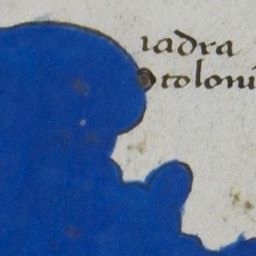 iadra
coloni